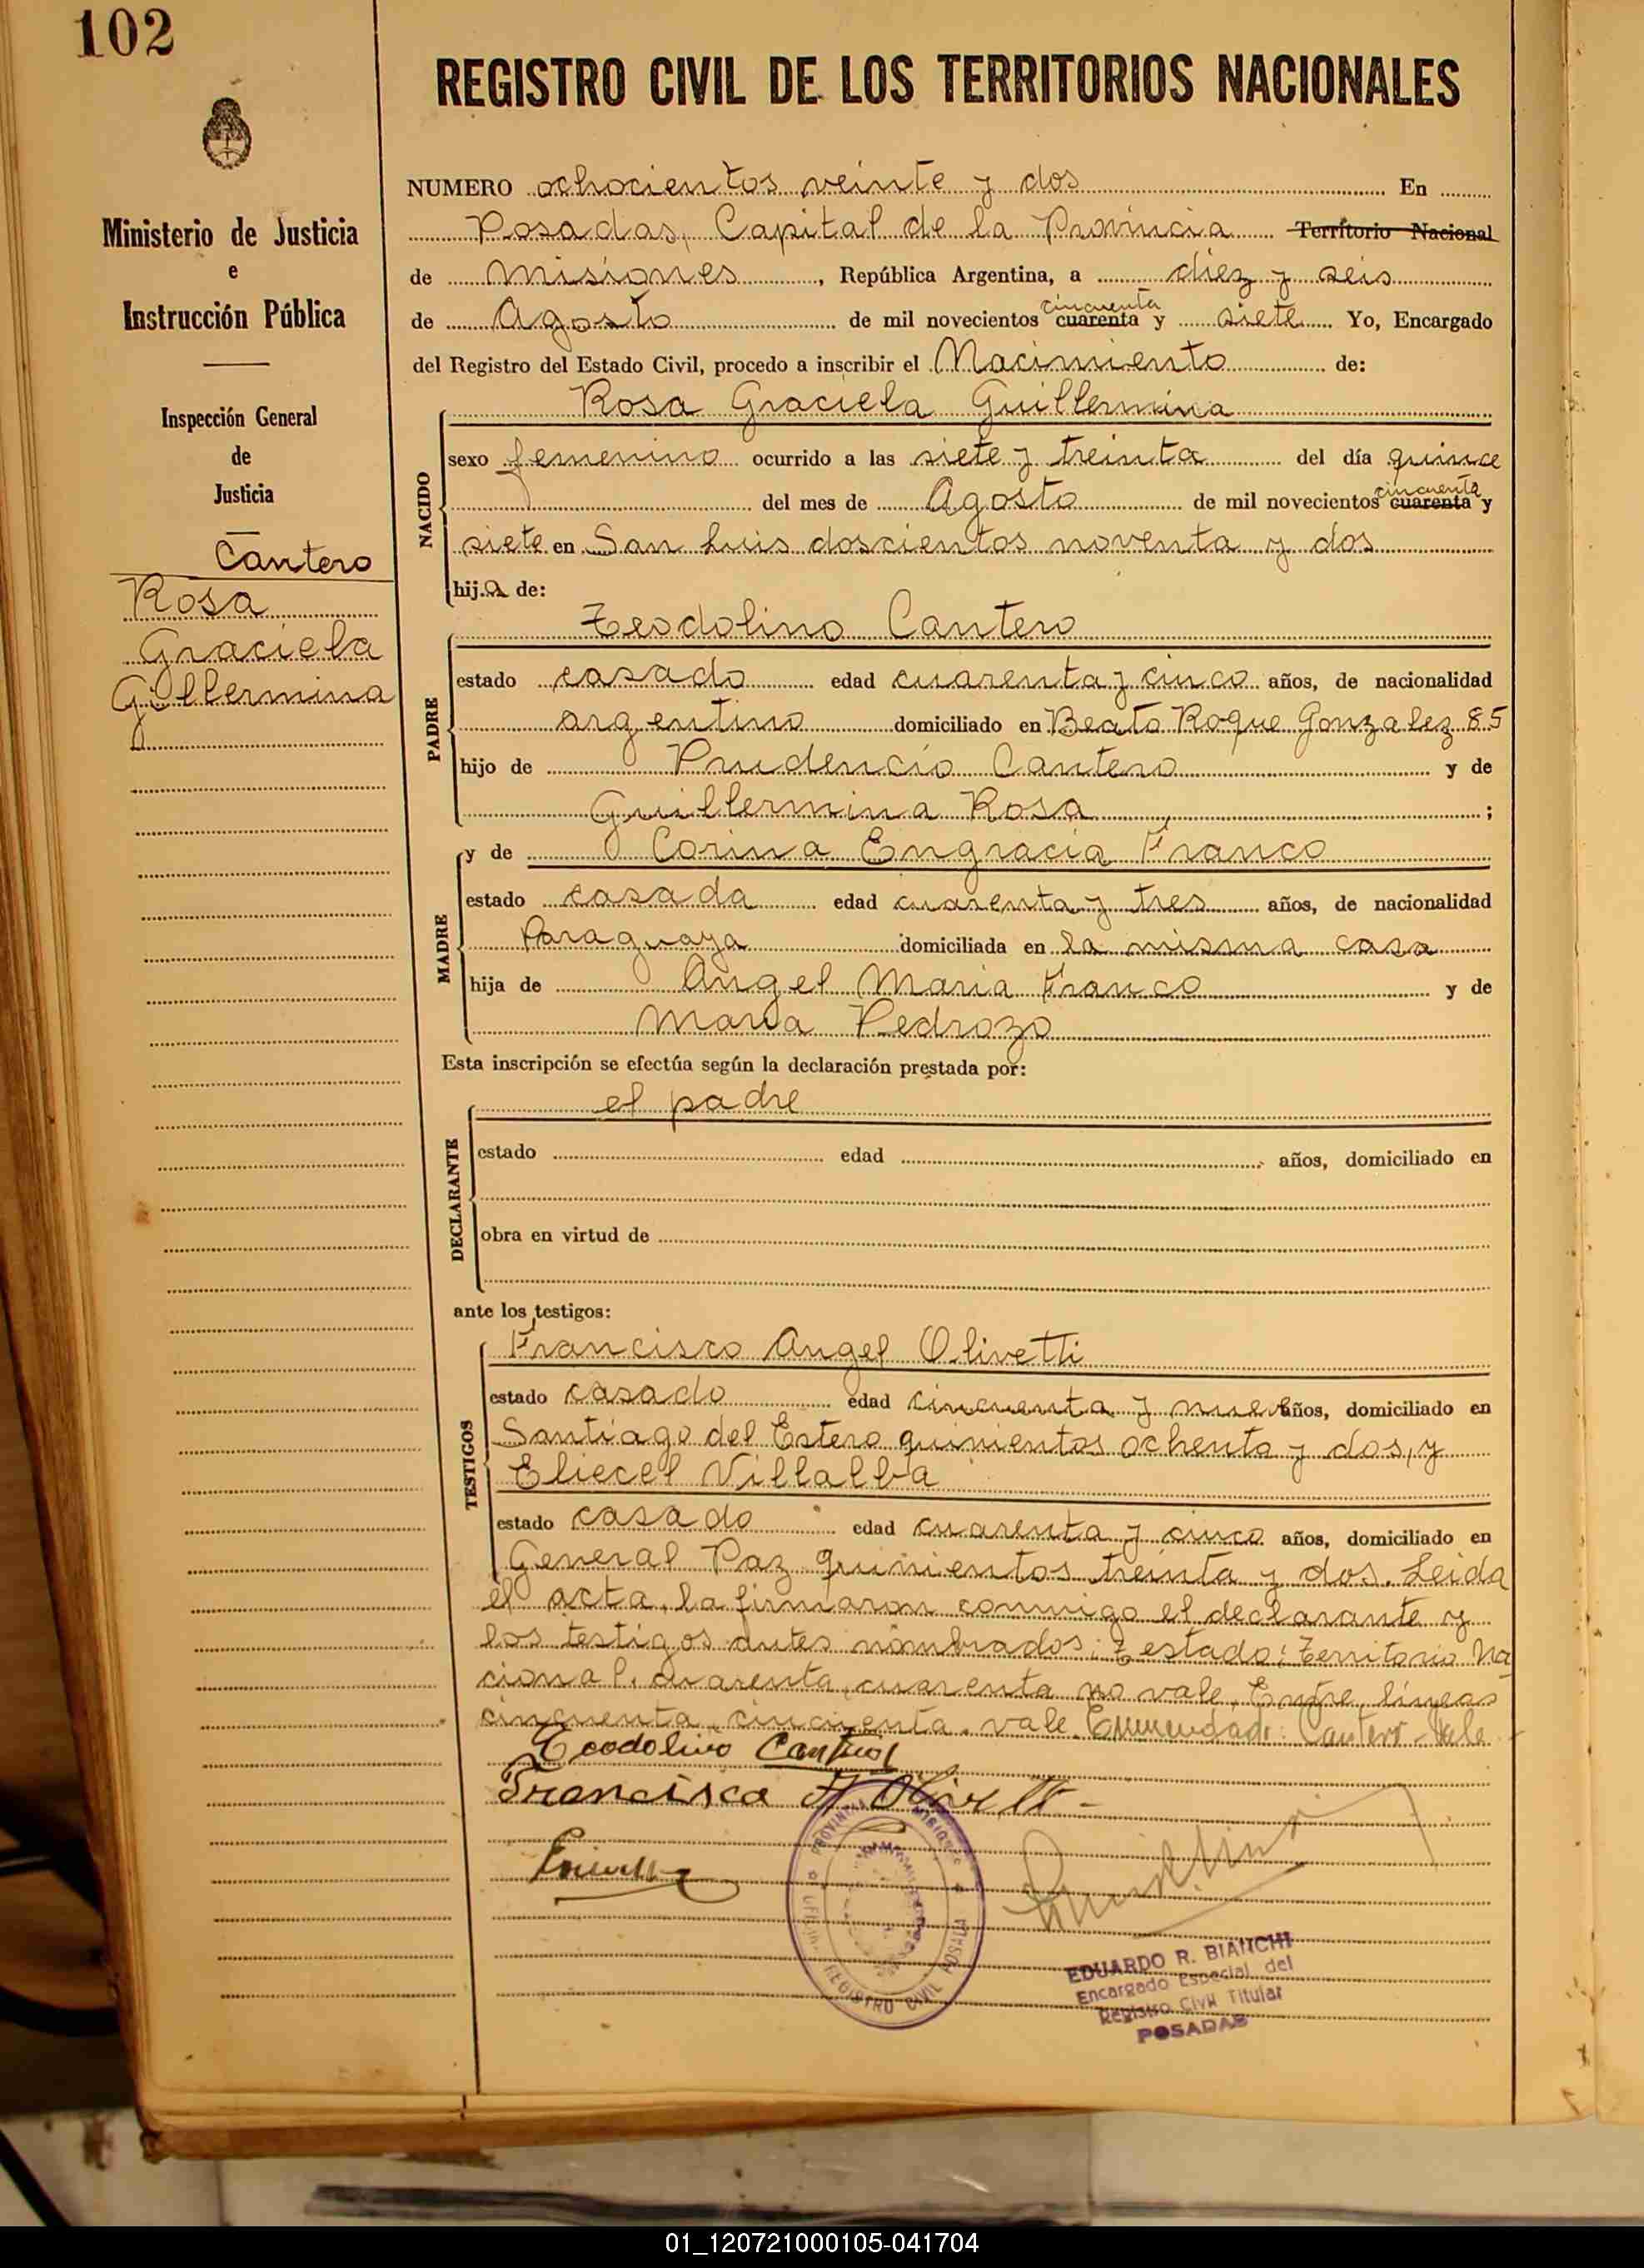 102
REGISTRO CIVIL DE LOS TERRITORIOS NACIONALES
Ministerio de Justicia
e
Instrucción Pública
Inspección General
de
Justicia
Cantero
Rosa
Graciela
Gillermina
NUMERO ochocientos veinte y dos En
Posadas, Capital de la Provincia Territorio Nacional
de Misiones, República Argentina, a diez y seis
cincuenta
de Agosto de mil novecientos cuarenta y siete Yo, Encargado
del Registro del Estado Civil, procedo a inscribir el Nacimiento de:
NACIDO
Rosa Graciela Guillermina
sexo femenino ocurrido a las siete y treinta del día quince
cincuenta
del mes de Agosto de mil novecientos cuarenta y
siete en San Luis doscientos noventa y dos
hija de:
PADRE
Teodolino Cantero
estado casado edad cuarenta y cinco años, de nacionalidad
argentino domiciliado en Beato Roque Gonzalez 85
hijo de Prudencio Cantero y de
Guillermina Rosa ;
MADRE
y de Corina Engracia Franco
estado casada edad cuarenta y tres años, de nacionalidad
Paraguaya domiciliada en la misma casa
hija de Angel Maria Franco y de
Maria Pedrozo
Esta inscripción se efectúa según la declaración prestada por:
DECLARANTE
el padre
estado edad años, domiciliado en
obra en virtud de
ante los testigos:
TESTIGOS
Francisco Angel Olivetti
estado casado edad cincuenta y nueve años, domiciliado en
Santiago del Estero quinientos ochenta y dos, y
Eliecel Villalba
estado casado edad cuarenta y cinco años, domiciliado en
General Paz quinientos treinta y dos. Leida
el acta, la firmaron conmigo el declarante y
los testigos antes nombrados: Testado: Territorio Na
cional. cuarenta, cuarenta no vale, Entre lineas
cincuenta, cincuenta. vale. Enmendado: Cantero - Vale
Teodolino Cantero
Francisco A. Olivetti -
PROVINCIA MISIONES
OFICINA REGISTRO CIVIL POSADAS
EDUARDO R. BIANCHI
Encargado Especial del
Registro Civil Titular
POSADAS
01_120721000105-041704